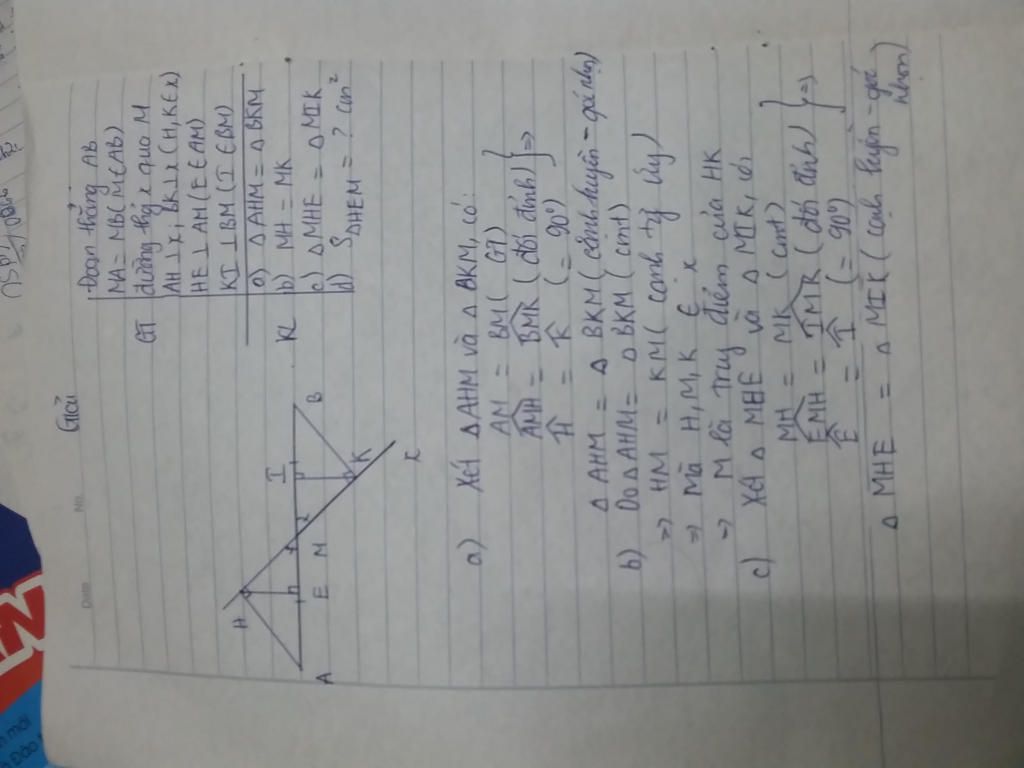 Giải
Đoạn thẳng AB
MA = MB (M ∈ AB)
GT đường thẳng x qua M
AH ⊥ x, BK ⊥ x (H, K ∈ x)
HE ⊥ AM (E ∈ AM)
KI ⊥ BM (I ∈ BM)
a) Δ AHM = Δ BKM
KL b) MH = MK
c) Δ MHE = Δ MIK
d) SΔHEM = ? cm²
H
A E M I B
K
x
a) Xét Δ AHM và Δ BKM, có:
AM = BM (GT)
AMH = BMK (đối đỉnh) } =>
H = K (= 90°)
Δ AHM = Δ BKM (cạnh huyền - góc nhọn)
b) Do Δ AHM = Δ BKM (cmt)
=> HM = KM (cạnh tg ứng)
=> Mà H, M, K ∈ x
=> M là trung điểm của HK
c) Xét Δ MHE và Δ MIK, có
MH = MK (cmt)
EMH = IMK (đối đỉnh) } =>
E = I (= 90°)
Δ MHE = Δ MIK (cạnh huyền - góc
nhọn)
Date No.